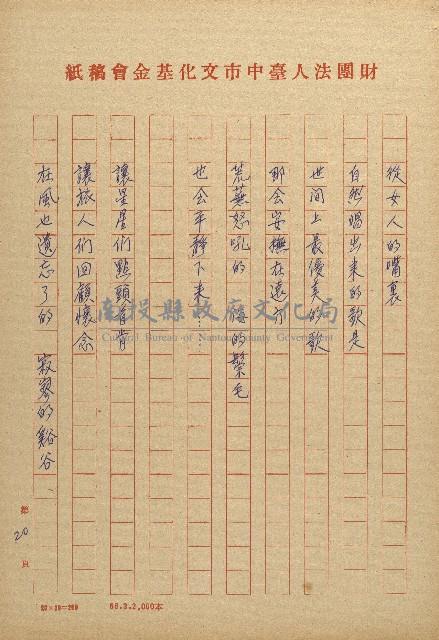 財團法人臺中市文化基金會稿紙
從女人的嘴裏
自然唱出来的歌是
世间上最優美的歌
那会安撫在遠方
荒蕪怒吼的 海的鬃毛
也会平静下来……
讓星星们點頭首肯
讓旅人们回顧懷念
在風也遺忘了的 寂寥的谿谷
第20頁
20×10=200
68.3.2,000本
南投縣政府文化局
Cultural Bureau of Nantou County Government